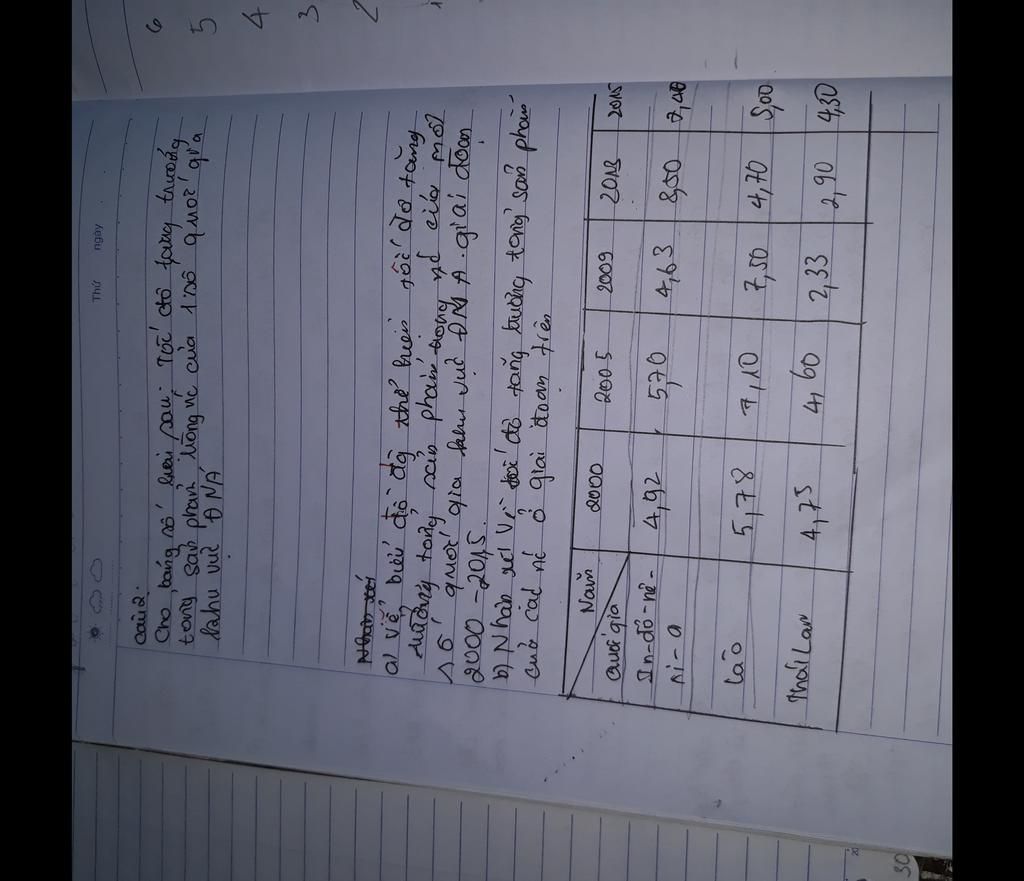 6
5
4
3
2
Thứ ngày
Câu 2:
Cho bảng số liệu sau: Tốc độ tăng trưởng
tổng sản phẩm trong nc của 1 số quốc gia
khu vực ĐNÁ
Nhận xét
a) Vẽ biểu đồ thể hiện tốc độ tăng
trưởng tổng sản phẩm trong nc của một
số quốc gia khu vực ĐNA giai đoạn
2000 - 2015.
b) Nhận xét về tốc độ tăng trưởng tổng sản phẩm
của các nc ở giai đoạn trên
Năm 2000 2005 2009 2013 2015
Quốc gia
In-đô-nê- 4,92 5,70 4,63 8,50
ni-a
Lào 5,78 7,10 7,50 4,70 5,00
Thái Lan 4,75 4,60 2,33 2,90 4,30
20
30